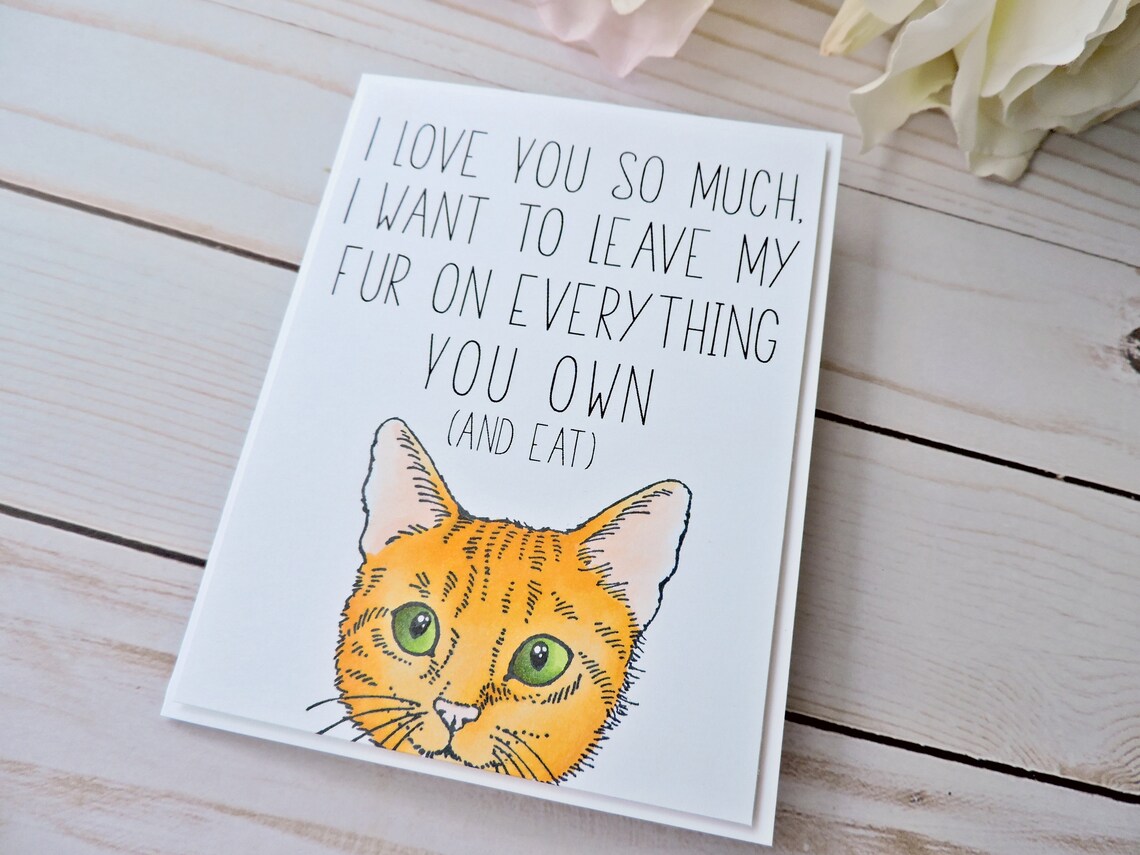 I LOVE YOU SO MUCH,
I WANT TO LEAVE MY
FUR ON EVERYTHING
YOU OWN
(AND EAT)